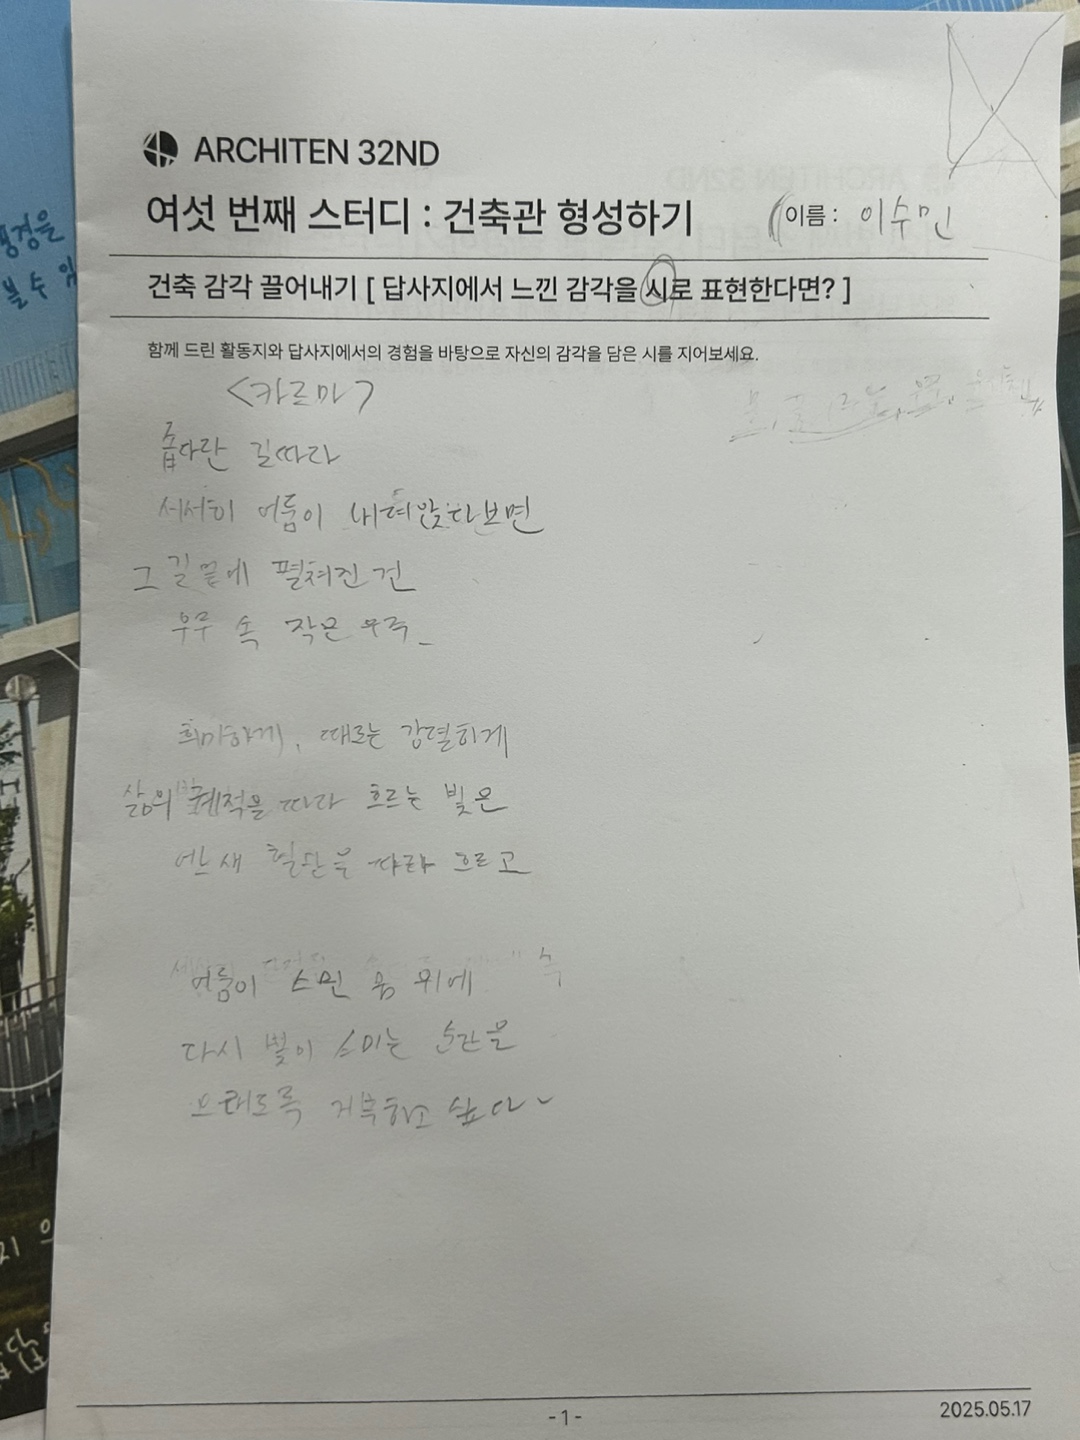 ARCHITEN 32ND
여섯 번째 스터디 : 건축관 형성하기
이름 : 이수민
건축 감각 끌어내기 [ 답사지에서 느낀 감각을 시로 표현한다면? ]
함께 드린 활동지와 답사지에서의 경험을 바탕으로 자신의 감각을 담은 시를 지어보세요.
<카르마>
좁다란 길따라
서서히 어둠이 내려앉다보면
그 길 끝에 펼쳐진 건
우주 속 작은 우주_
희미하게, 때로는 강렬하게
삶의 궤적을 따라 흐르는 빛은
어느새 혈관을 따라 흐르고
어둠이 스민 몸 위에
다시 빛이 스미는 순간을
오래도록 기억하고 싶다
- 1 -
2025.05.17
풍경을
볼 수 있